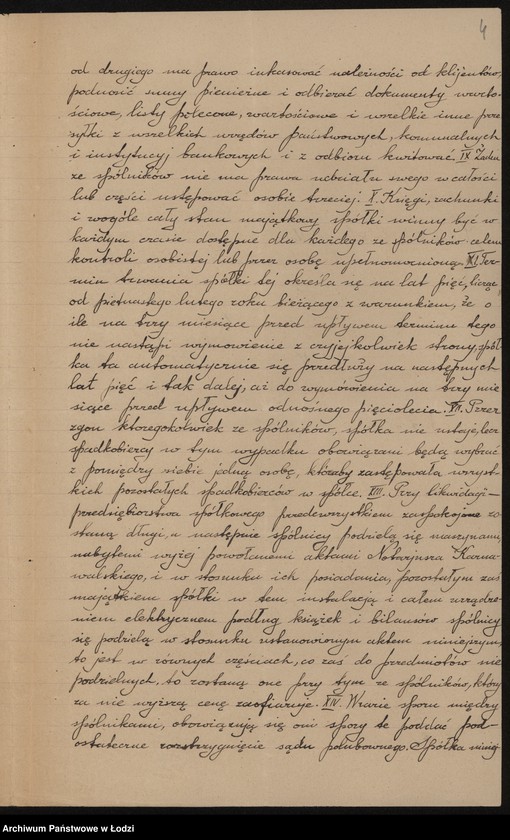 4
od drugiego ma prawo inkasować należności od klijentów,
podnosić sumy pieniężne i odbierać dokumenty warto-
ściowe, listy polecone, wartościowe i wszelkie inne prze
syłki z wszelkich urzędów państwowych, komunalnych
i instytucyj bankowych i z odbioru kwitować. IX Żaden
ze spólników nie ma prawa udziału swego w całości
lub części ustępować osobie trzeciej. X. Księgi, rachunki
i wogóle cały stan majątkowy spółki winny być w
każdym czasie dostępne dla każdego ze spólników celem
kontroli osobistej lub przez osobę upełnomocnioną. XI. Ter-
min trwania spółki tej określa się na lat pięć, licząc
od piętnastego lutego roku bieżącego z warunkiem, że o
ile na trzy miesiące przed upływem terminu tego
nie nastąpi wymówienie z czyjejkolwiek strony, spół-
ka ta automatycznie się przedłuży na następnych
lat pięć i tak dalej, aż do wymówienia na trzy mie
siące przed upływem odnośnego pięciolecia. XII. Przez
zgon któregokolwiek ze spólników, spółka nie ustaje, lecz
spadkobiercy w tym wypadku obowiązani będą wybrać
z pomiędzy siebie jedną osobę, któraby zastępowała wszyst-
kich pozostałych spadkobierców w spółce. XIII. Przy likwidacji
przedsiębiorstwa spółkowego przedewszystkiem zaspokojone zo-
staną długi, a następnie spólnicy podzielą się maszynami,
nabytemi wyżej powołanemi aktami Notarjusza Karna-
walskiego, i w stosunku ich posiadania, pozostałym zaś
majątkiem spółki w tem instalacją i całem urządze-
niem elektrycznem podług książek i bilansów spólnicy
się podzielą w stosunku ustanowionym aktem niniejszym,
to jest w równych częściach, co zaś do przedmiotów nie
podzielnych, to zostaną one przy tym ze spólników, który
za nie wyższą cenę zaofiaruje. XIV. W razie sporu między
spólnikami, obowiązują się oni spory te poddać pod
ostateczne rozstrzygnięcie sądu polubownego. Spółka niniej
Archiwum Państwowe w Łodzi